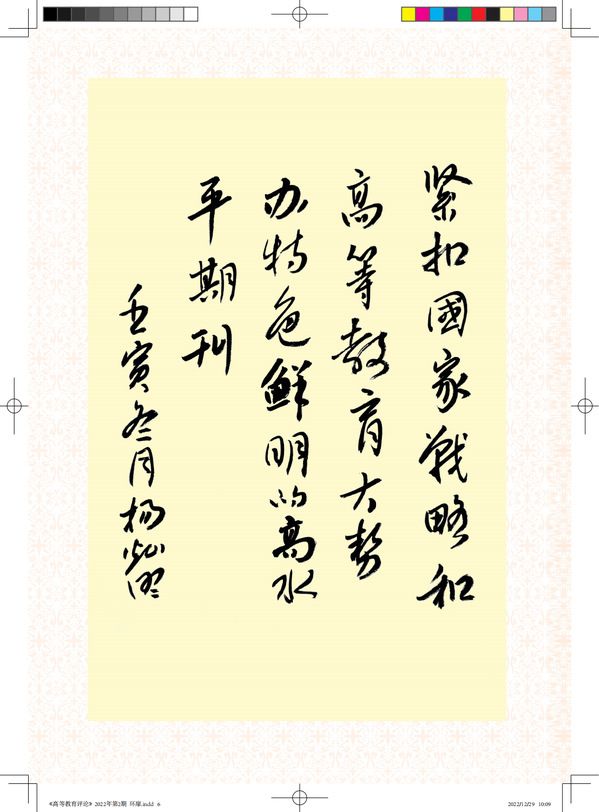 紧扣國家戰略和
高等教育大势
办特色鲜明的高水
平期刊
壬寅冬月杨灿明
《高等教育评论》2022年第2期 环扉.indd 6
2022/12/29 10:09